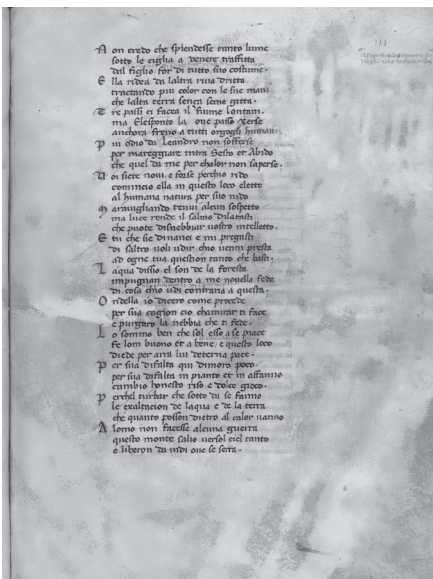 Non credo che splendesse tanto lume
sotto le ciglia a venere traffitta
dal figlio for di tutto suo costume.
Ella ridea da laltra riva dritta
tractando piu color con le sue mani
che lalta terra sença seme gitta.
Tre passi ci facea il fiume lontani.
ma Elesponto la oue passo xerse
anchora freno a tutti orgogli humani
Piu odio da Leandro non sofferse
per mareggiare intra Sesto et Abido
che quel da me perchalor non saperse.
Uoi siete noui e forse perchio rido
comincio ella in questo loco eletto
al humana natura per suo nido
Marauigliando tenui alcun sospetto
ma luce rende il salmo dilatasti
che puote disnebbiar uostro intelletto.
E tu che sie dinanci e mi pregasti
di saltro uoli udir chio uenni presta
ad ogne tua question tanto che basti.
Laqua dissio el son de la foresta
impugnan dentro a me nouella fede
di cosa chio udi contraria a questa.
Ondella io dicero come procede
per sua cagion cio chamirar ti face
e purgaro la nebbia che ti fede.
Lo sommo ben che sol esso a se piace
fe lom buono et a bene. e questo loco
diede per arra lui deterna pace.
Per sua difalta qui dimoro poco
per sua difalta in pianto et in affanno
cambio honesto riso e dolce gioco.
Perchel turbar che sotto da se fanno
le exaltacion de laqua e de la terra
che quanto posson dietro al calor uanno
Alomo non facesse alcuna guerra
questo monte salio uersol ciel tanto
e liberon da indi oue se serra.